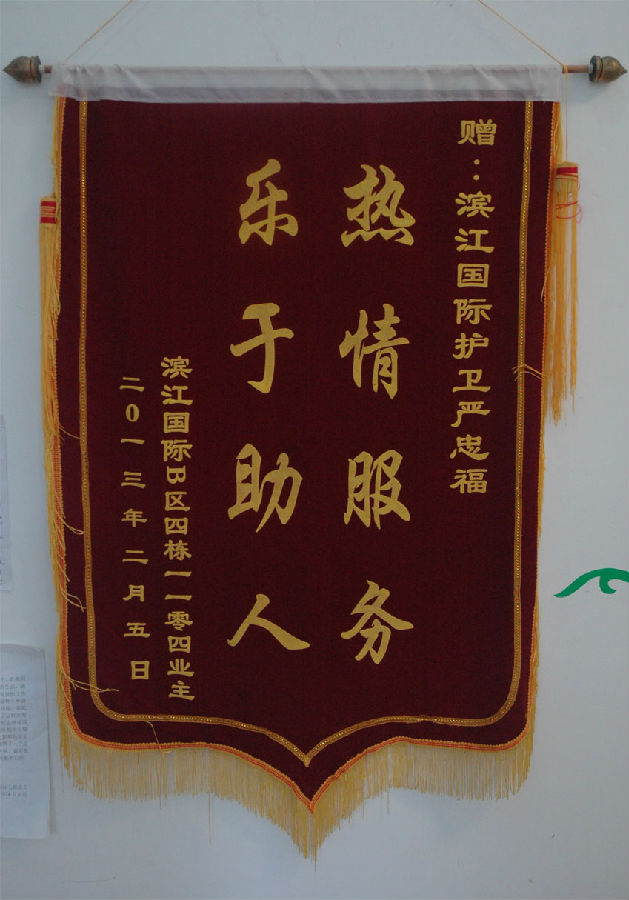 赠：滨江国际护卫严忠福
热情服务
乐于助人
滨江国际B区四栋一一零四业主
二0一三年二月五日